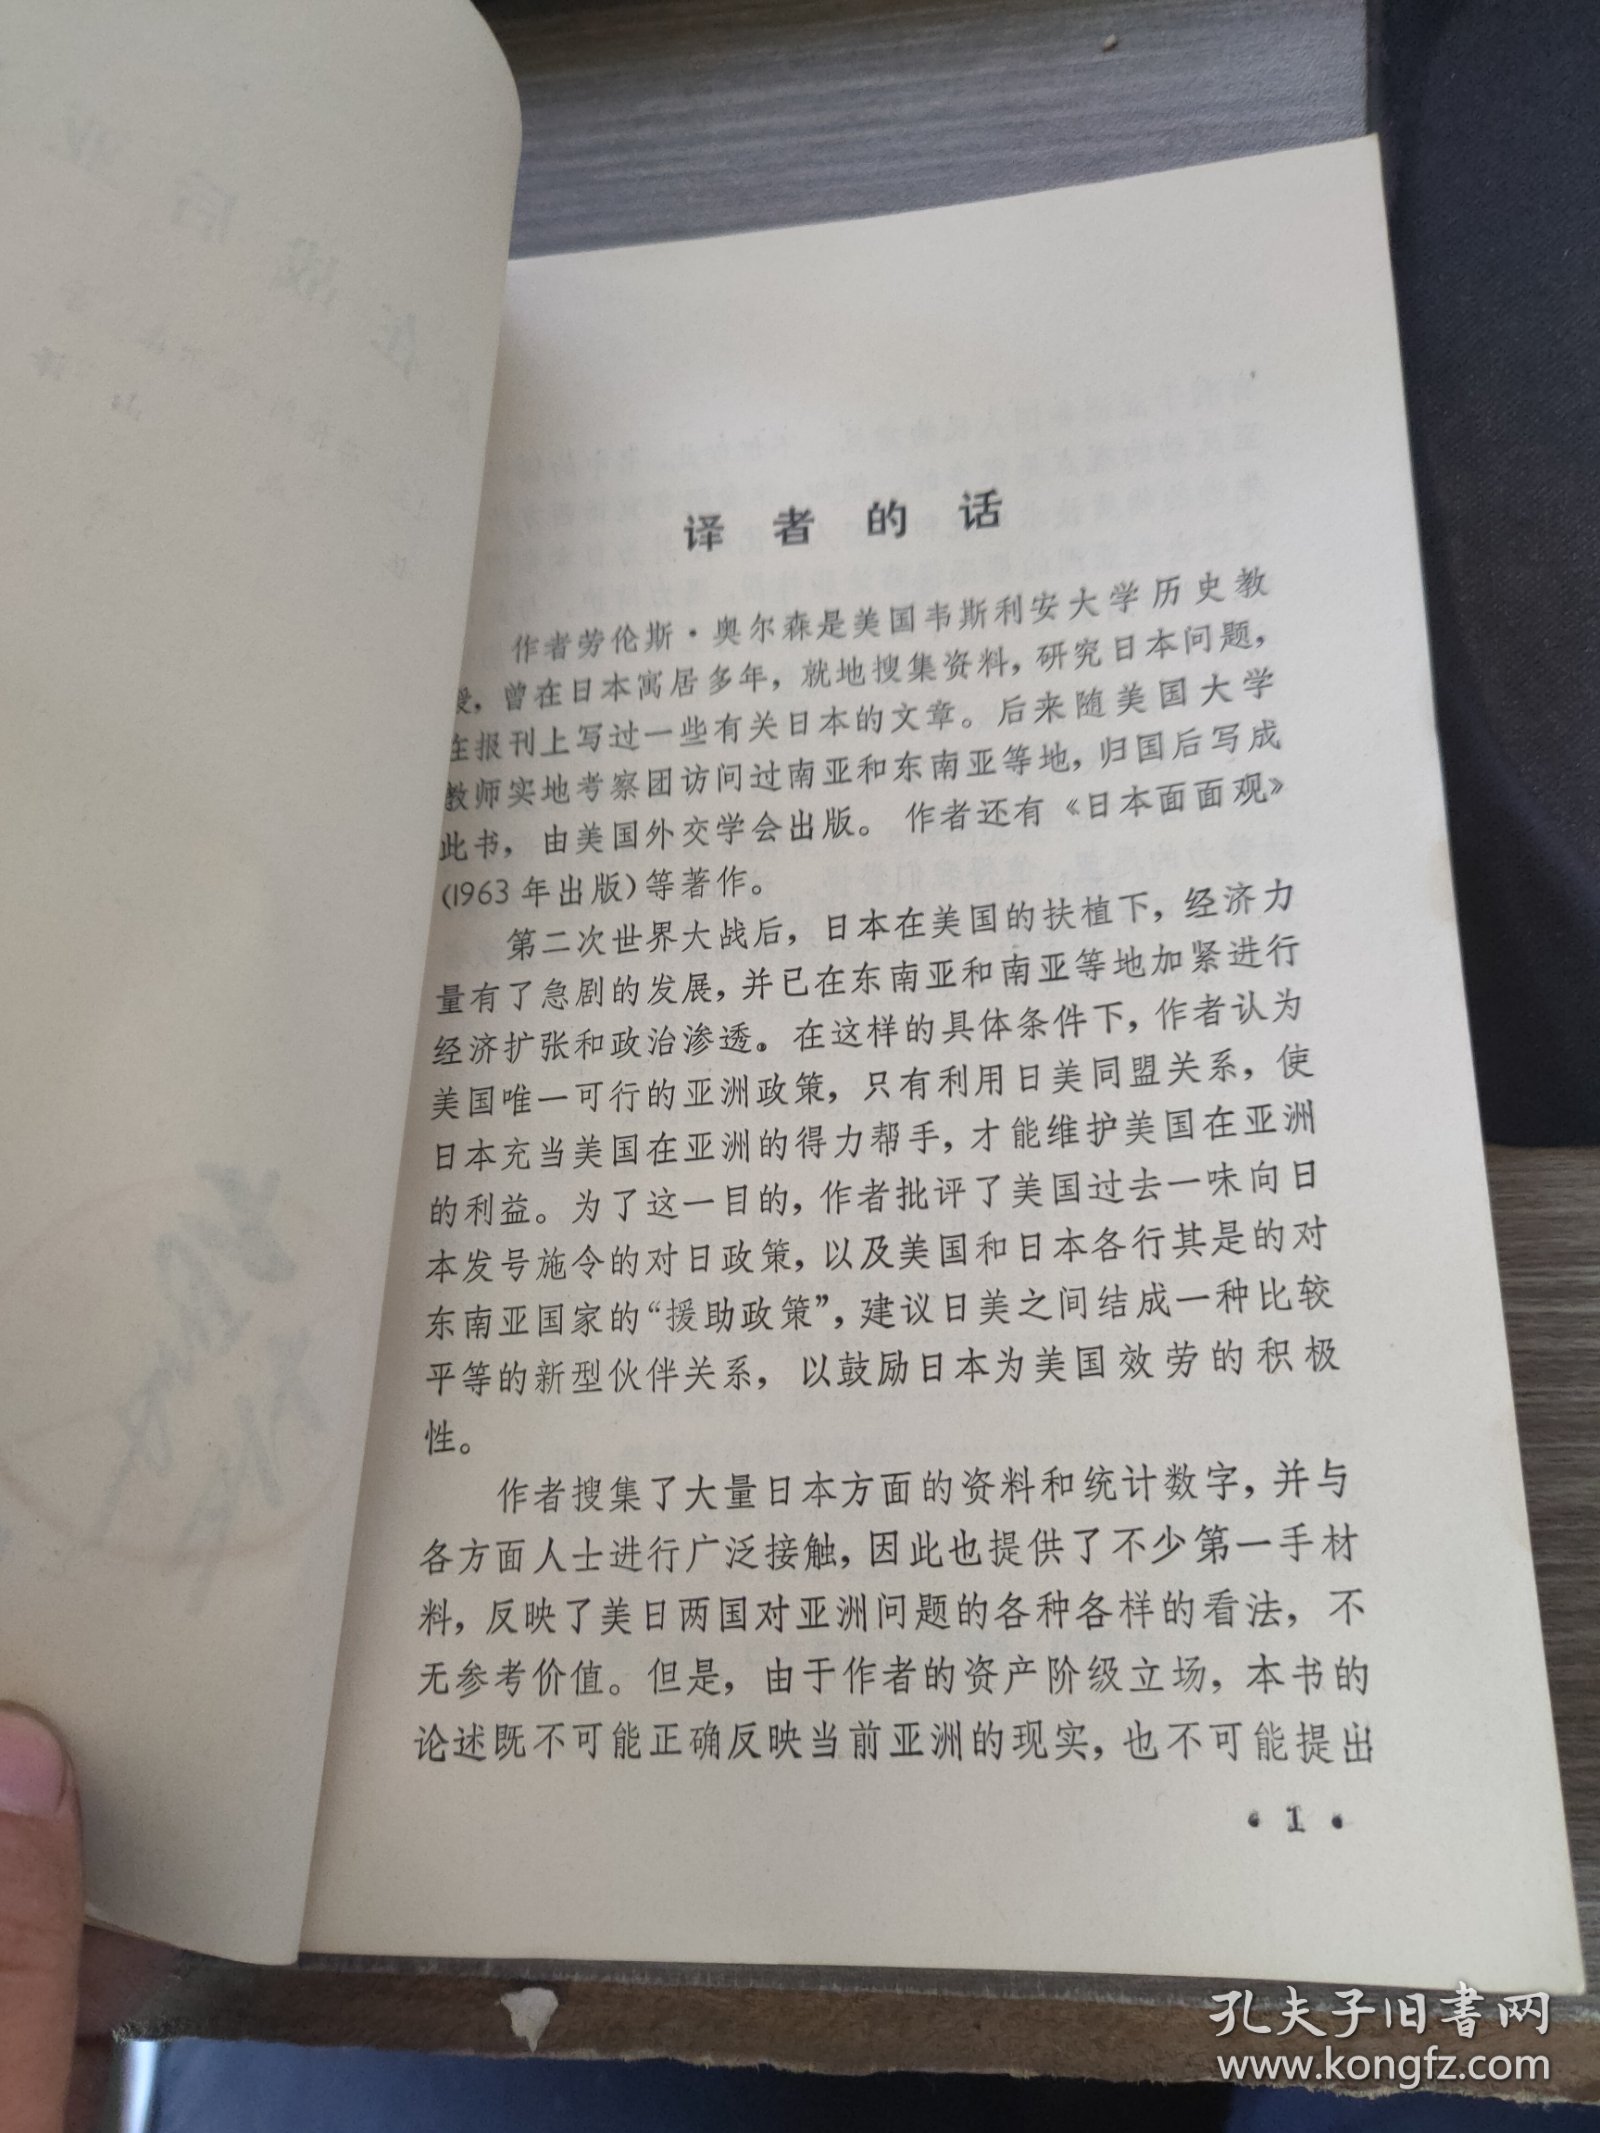 译者的话
作者劳伦斯·奥尔森是美国韦斯利安大学历史教
授，曾在日本寓居多年，就地搜集资料，研究日本问题，
在报刊上写过一些有关日本的文章。后来随美国大学
教师实地考察团访问过南亚和东南亚等地，归国后写成
此书，由美国外交学会出版。作者还有《日本面面观》
(1963年出版)等著作。
第二次世界大战后，日本在美国的扶植下，经济力
量有了急剧的发展，并已在东南亚和南亚等地加紧进行
经济扩张和政治渗透。在这样的具体条件下，作者认为
美国唯一可行的亚洲政策，只有利用日美同盟关系，使
日本充当美国在亚洲的得力帮手，才能维护美国在亚洲
的利益。为了这一目的，作者批评了美国过去一味向日
本发号施令的对日政策，以及美国和日本各行其是的对
东南亚国家的“援助政策”，建议日美之间结成一种比较
平等的新型伙伴关系，以鼓励日本为美国效劳的积极
性。
作者搜集了大量日本方面的资料和统计数字，并与
各方面人士进行广泛接触，因此也提供了不少第一手材
料，反映了美日两国对亚洲问题的各种各样的看法，不
无参考价值。但是，由于作者的资产阶级立场，本书的
论述既不可能正确反映当前亚洲的现实，也不可能提出
·1·
孔夫子旧书网
www.kongfz.com